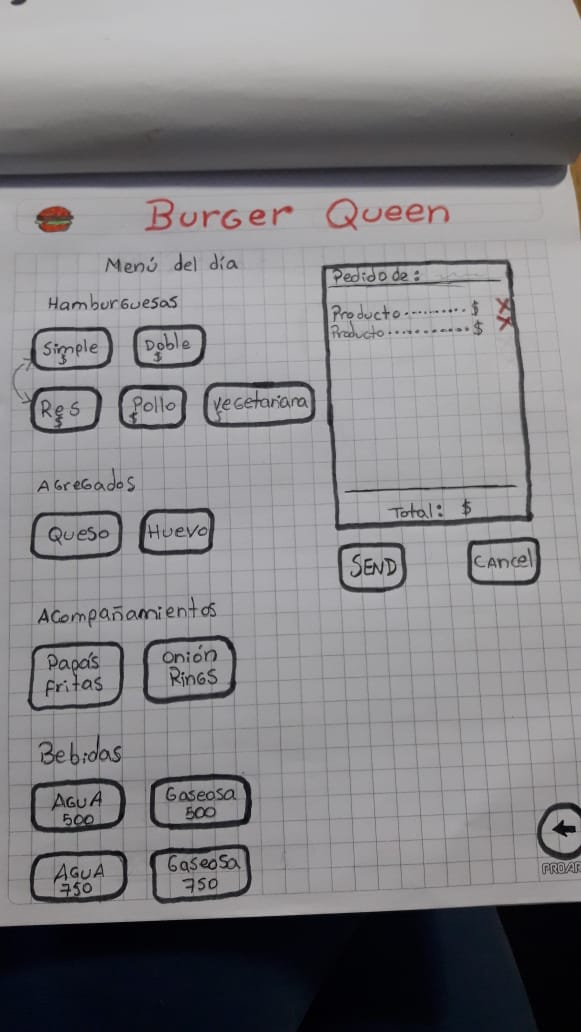 Burger Queen
Menú del día
Hamburguesas
Simple
$
Doble
$
Res
$
Pollo
$
Vegetariana
$
Agregados
Queso
Huevo
Acompañamientos
Papás
fritas
Onión
Rings
Bebidas
AGUA
500
Gaseosa
500
AGUA
750
Gaseosa
750
Pedido de:
Producto........... $ X
Producto............ $ X
Total: $
SEND
Cancel